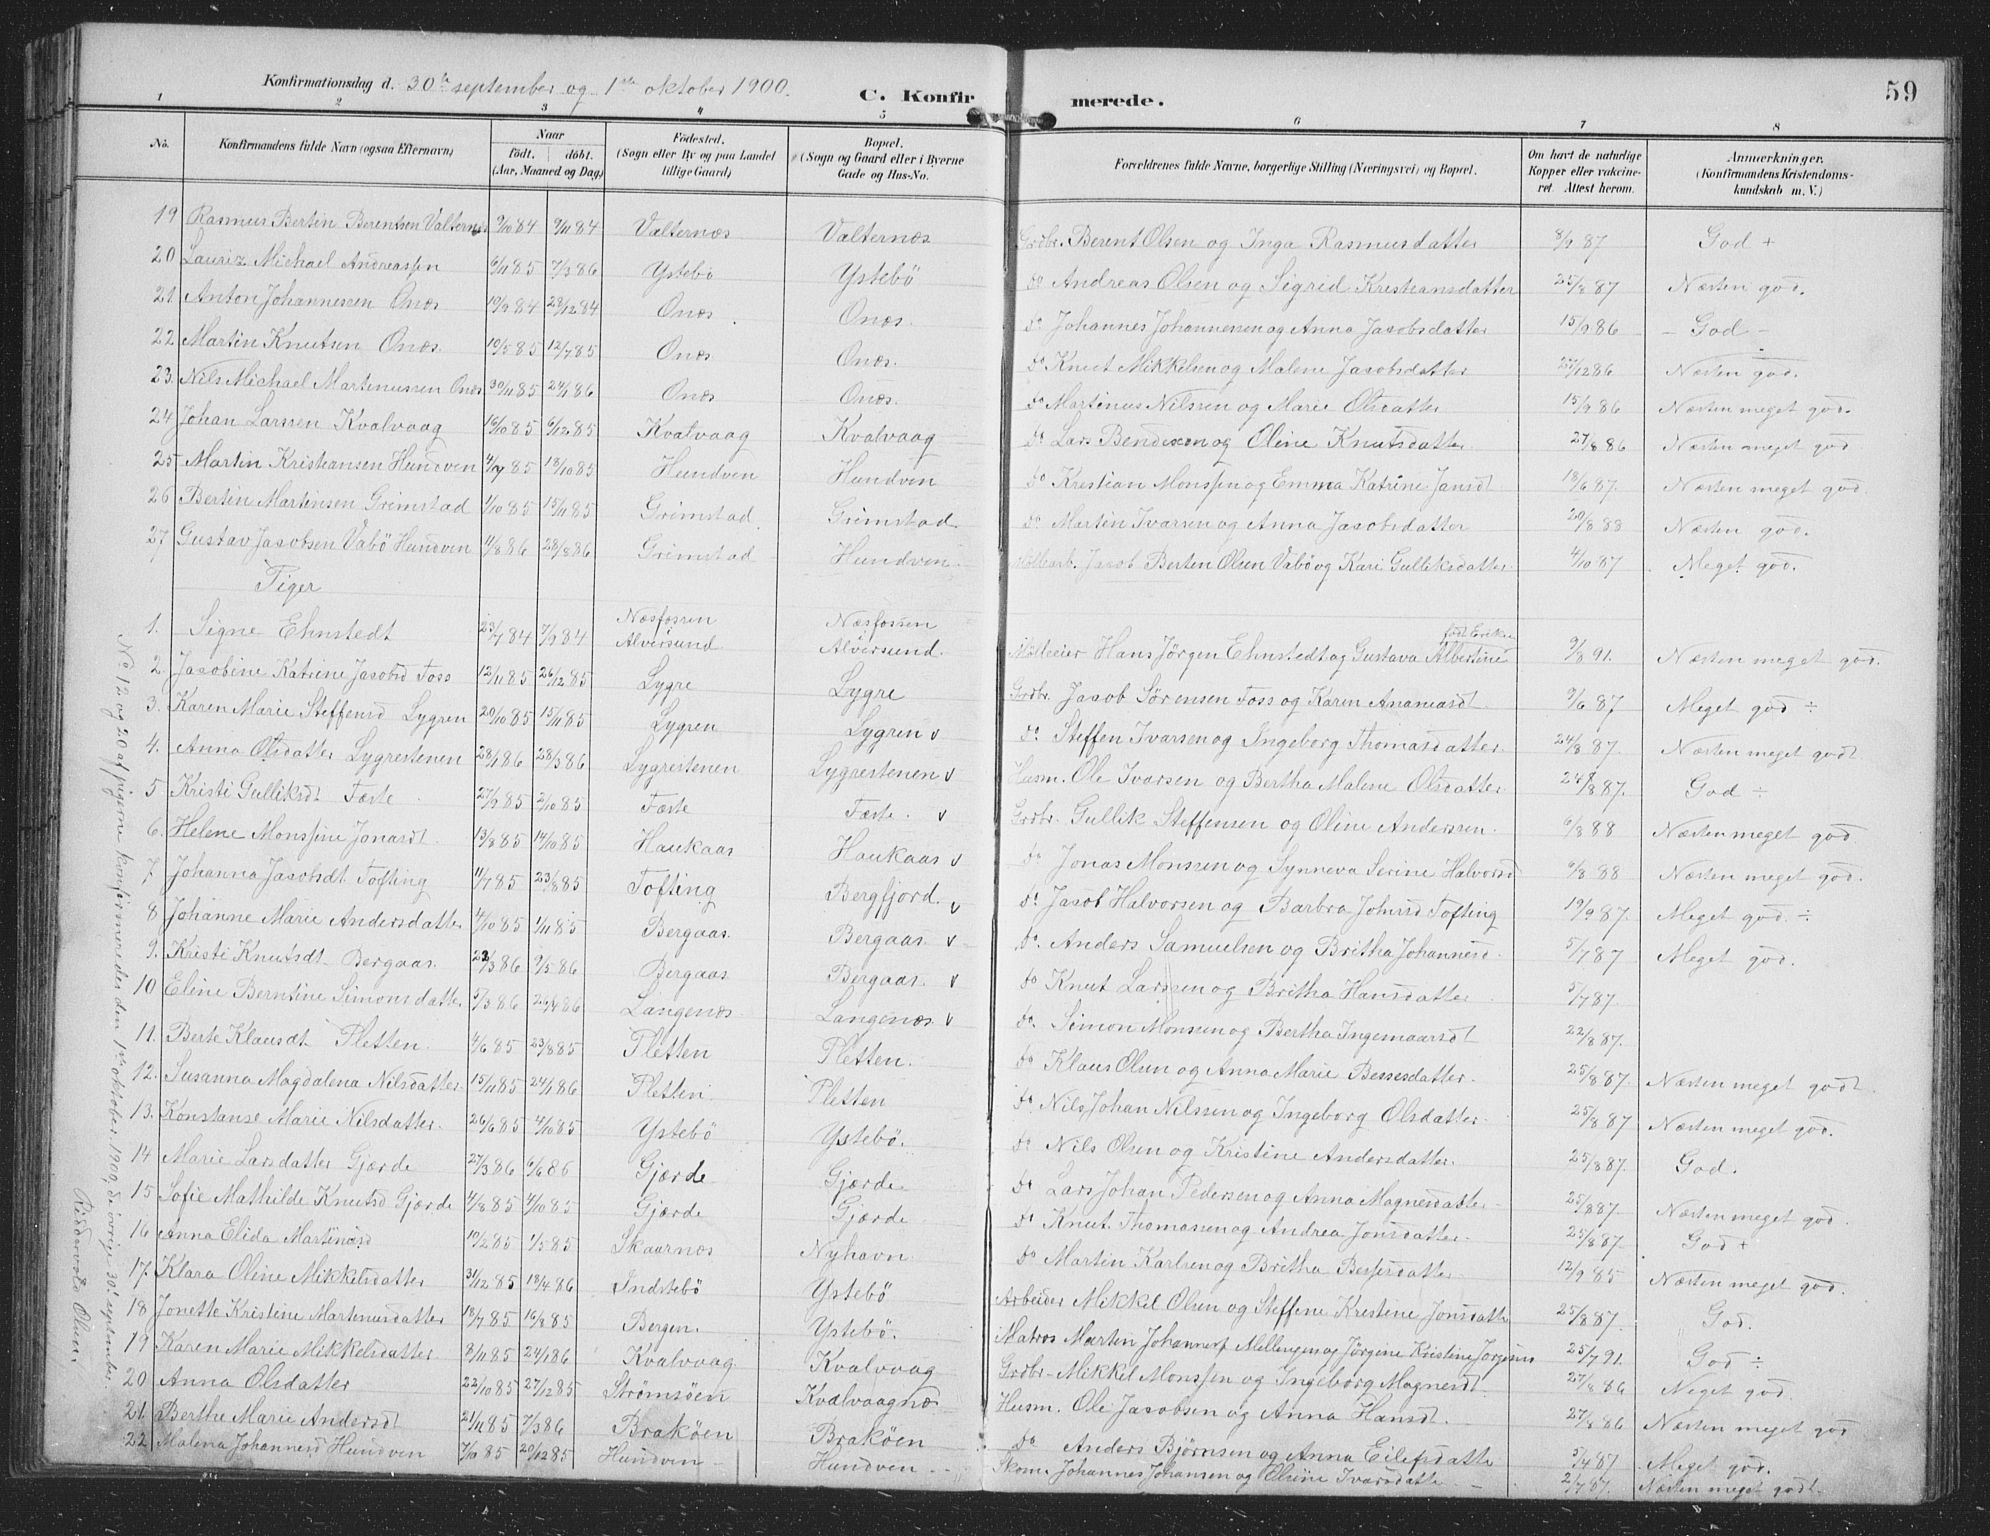 Konfirmationsdag d. 30te september og 1ste oktober 1900.
C. Konfirmerede.
59
1 2 3 4 5 6 7 8
No. Konfirmandens fulde Navn (ogsaa Efternavn)
Naar födt. döbt. (Aar, Maaned og Dag)
Födested. (Sogn eller By og paa Landet tillige Gaard)
Bopæl. (Sogn og Gaard eller i Byerne Gade og Hus-No.
Forældrenes fulde Navne, borgerlige Stilling (Næringsvei) og Bopæl.
Om havt de naturlige Kopper eller vakcineret. Attest herom.
Anmærkninger. (Konfirmandens Kristendomskundskab m. V.)
19 Rasmus Bertin Berentsen Valternes 9/10 84 9/11 84 Valternæs Valternæs Grdbr. Berent Olsen og Inga Rasmusdatter 8/9 87 God +
20 Lauriz Michael Andreassen 6/11 85 7/3 86 Ystebö Ystebö do Andreas Olsen og Sigrid Kristiansdatter 25/8 87 Næsten god.
21. Anton Johannessen Onæs 10/9 84 29/12 84 Onæs. Onæs. do Johannes Johannessen og Anna Jacobsdatter 15/9 86 – God –
22 Martin Knutsen Onæs. 10/5 85 12/7 85 Onæs Onæs. do Knut Mikkelsen og Malene Jacobsdatter 27/12 86 Næsten god.
23. Nils Michael Martinussen Onæs 30/11 85 24/1 86 Onæs Onæs. do Martinus Nilssen og Marie Olsdatter 15/9 86 Næsten meget god.
24 Johan Larssen Kvalvaag 16/10 85 6/12 85 Kvalvaag Kvalvaag do Lars Bendixen og Oline Knutsdatter. 27/8 86 Næsten meget god
25 Martin Kristiansen Hundven 4/7 85 18/10 85 Hundven Hundven do Kristian Monssen og Emma Katrine Jansdt 18/6 87. Næsten meget god.
26 Bertin Martinsen Grimstad 1/10 85 15/11 85 Grimstad. Grimstad do Martin Ivarsen og Anna Jacobsdatter 20/8 88 Næsten god.
27 Gustav Jacobsen Vabö Hundven 11/8 86 28/8 86 Grimstad Hundven. Möllearb. Jacob Berten Olsen Vabö og Kari Gulliksdatter 4/10 87 Meget god.
Piger
1. Signe Ehnstedt 23/7 84 7/9 84 Næsfossen Alversund Næsfossen Alversund. Mölleeier Hans Jörgen Ehnstedt og Gustava Albertine född Eriksen 9/8 91. Næsten meget god.
2. Jacobine Katrine Jacobsd Foss 12/11 85 26/12 85 Lygre Lygre Grdbr. Jacob Sörensen Foss og Karen Ananiasdt. 9/6 87 Meget god ÷
3. Karen Marie Steffensd Lygren 20/10 85 15/11 85 Lygren Lygren v do Steffen Ivarsen og Ingeborg Thomasdatter. 24/8 87. Næsten meget godt
4. Anna Olsdatter Lygrestenen 28/1 86 28/3 86 Lygrestenen Lygrestenen v Husm. Ole Ivarsen og Bertha Malene Olsdatter 24/8 87. God ÷
5 Kristi Gulliksdt Fæste 27/9 85 2/10 85 Fæste Fæste. v Grdbr. Gullik Steffensen og Oline Anderssen. 6/8 88 Næsten meget god
6. Helene Monssine Jonasdt 13/8 85 14/10 85 Haukaas Haukaas v do Jonas Monsen og Synneva Serine Halvorsd 6/8 88 Næsten meget god.
7 Johanna Jacobsdt Tofting 11/7 85 23/8 85 Tofting Bergfjord. v do Jacob Halvorsen og Barbra Johnsd Tofting 19/9 87. Meget god. ÷
8 Johanne Marie Andersdatter 4/10 85 1/11 85 Bergaas. Bergaas v do Anders Samuelsen og Britha Johannesd. 5/7 87 Meget god.
9. Kristi Knutsdt Bergaas. 23/3 86 9/5 86 Bergaas Bergaas v do Knut Larssen og Britha Hansdatter 5/7 87.
10 Eline Berntine Simonsdatter 5/3 86 26/4 86 Langenæs. Langenæs v do Simon Monsen og Bertha Ingemaarsdt 22/8 87.
11. Berte Klausdt Pletten. 4/6 85 23/8 85 Pletten Pletten. do Klaus Olsen og Anna Marie Bessesdatter. 25/8 87. Næsten meget godt.
12. Susanna Magdalena Nilsdatter. 15/11 85 24/1 86 Pletten Pletten do Nils Johan Nilssen og Ingeborg Olsdatter. 25/8 87 Næsten meget god.
13. Konstanse Marie Nilsdatter. 26/6 85 4/10 85 Ystebö Ystebö. do Nils Olsen og Kristine Andersdatter. 25/8 87. God.
14 Marie Larsdatter Gjærde 27/3 86 6/6 86 Gjærde Gjærde do Lars Johan Pedersen og Anna Magnesdatter 25/8 87. Næsten meget god.
15 Sofie Mathilde Knutsd Gjærde 4/8 85 4/10 85 Gjærde Gjærde do Knut Thomasen og Andrea Jonsdatter. 25/8 87. God +
16 Anna Elida Martinusd 10/2 85 1/5 85 Skaarnæs Nyhavn. do Martin Karlsen og Britha Bessesdatter. 12/9 85 Næsten meget god.
17. Klara Oline Mikkelsdatter 31/12 85 18/4 86 Indstebö Ystebö Arbeider Mikkel Olsen og Steffene Kristine Jonsdatter 25/8 87. God.
18 Jonette Kristine Martinusdatter 18/7 85 16/8 85 Bergen. Ystebö. Matros Marten Johannesf Mellingen og Jörgine Kristine Jörgens 25/7 91. God ÷
19 Karen Marie Mikkelsdatter 8/11 85 24/1 86 Kvalvaag Kvalvaag Grdbr. Mikkel Monssen og Ingeborg Magnesdt. 27/8 86 Meget god.
20 Anna Olsdatter 22/10 85 27/12 85 Strömsöen Kvalvaagnæs Husm. Ole Jacobsen og Anna Hansdt. 27/8 86 Næsten meget god
21. Berthe Marie Andersdt 21/11 85 7/3 86 Braköen Braköen do Anders Bjørnsen og Anna Eilefsdatter 5/4 87 Meget god.
22 Malena Johannesd Hundven 7/10 85 20/12 85 Hundven Hundven. Skom. Johannes Johansen og Olsine Ivarsdatter 2/7 87. Næsten meget godt.
No 12 og 20 af pigerne konfirmeredes den 1ste oktober 1900, de övrige 30te september.
Riddervold Olsen.